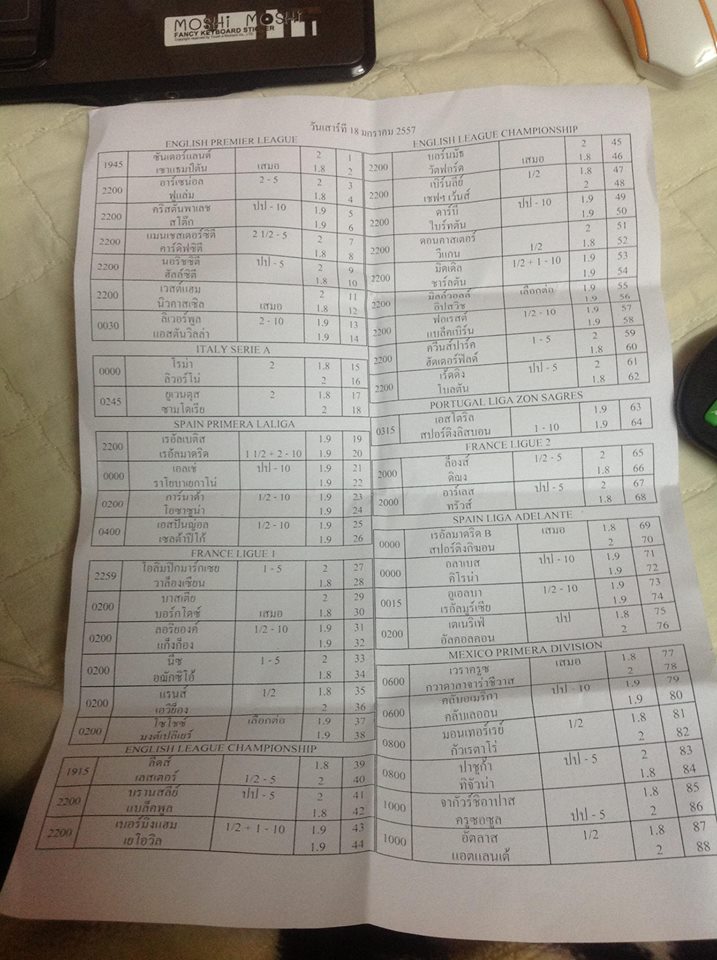 MOSHi MOSHi
FANCY KEYBOARD STICKER
วันเสาร์ที่ 18 มกราคม 2557
ENGLISH PREMIER LEAGUE
1945 ซันเดอร์แลนด์ 2 1
เซาแธมป์ตัน เสมอ 1.8 2
2200 อาร์เซน่อล 2 - 5 2 3
ฟูแล่ม 1.8 4
2200 คริสตันพาเลซ ปป - 10 1.9 5
สโต๊ก 1.9 6
2200 แมนเชสเตอร์ซิตี 2 1/2 - 5 2 7
คาร์ดิฟซิตี 1.8 8
2200 นอริชซิตี ปป - 5 2 9
ฮัลล์ซิตี 1.8 10
2200 เวสต์แฮม 2 11
นิวคาสเซิล เสมอ 1.8 12
0030 ลิเวอร์พูล 2 - 10 1.9 13
แอสตันวิลล่า 1.9 14
ITALY SERIE A
0000 โรม่า 2 1.8 15
ลิวอร์โน่ 2 16
0245 ยูเวนตุส 2 1.8 17
ซามโดเรีย 2 18
SPAIN PRIMERA LALIGA
2200 เรอัลเบติส 1.9 19
เรอัลมาดริด 1 1/2 + 2 - 10 1.9 20
0000 เอลเช่ ปป - 10 1.9 21
ราโยบาเยกาโน่ 1.9 22
0200 การ์นาด้า 1/2 - 10 1.9 23
โอซาซูน่า 1.9 24
0400 เอสปันญ่อล 1/2 - 10 1.9 25
เซลต้าบีโก้ 1.9 26
FRANCE LIGUE 1
2259 โอลิมปิกมาร์กเซย 1 - 5 2 27
วาล็องเซียน 1.8 28
0200 บาสเตีย 2 29
บอร์กโดซ์ เสมอ 1.8 30
0200 ลอริยองค์ 1/2 - 10 1.9 31
แก็งก็อง 1.9 32
0200 นีซ 1 - 5 2 33
อฌักซิโอ้ 1.8 34
0200 แรนส์ 1/2 1.8 35
เอวิย็อง 2 36
0200 โซโชซ์ เลือกต่อ 1.9 37
มงต์เปลิเยร์ 1.9 38
ENGLISH LEAGUE CHAMPIONSHIP
1915 ลีดส์ 1.8 39
เลสเตอร์ 1/2 - 5 2 40
2200 บรานสลีย์ ปป - 5 2 41
แบล็คพูล 1.8 42
2200 เบอร์มิงแฮม 1/2 + 1 - 10 1.9 43
เยโอวิล 1.9 44
ENGLISH LEAGUE CHAMPIONSHIP
2200 บอร์นมัธ 2 45
วัตฟอร์ด เสมอ 1.8 46
2200 เบิร์นลีย์ 1/2 1.8 47
เชฟฯ เว้นส์ 2 48
2200 ดาร์บี ปป - 10 1.9 49
ไบร์ทตัน 1.9 50
2200 ดอนคาสเตอร์ 2 51
วีแกน 1/2 1.8 52
2200 มิดเดิล 1/2 + 1 - 10 1.9 53
ชาร์ลตัน 1.9 54
2200 มิลล์วอลล์ เลือกต่อ 1.9 55
อิปสวิช 1.9 56
2200 ฟอเรสต์ 1/2 - 10 1.9 57
แบล็คเบิร์น 1.9 58
2200 ควีนส์ปาร์ค 1 - 5 2 59
ฮัดเดอร์ฟิลด์ 1.8 60
2200 เร้ดดิง ปป - 5 2 61
โบลตัน 1.8 62
PORTUGAL LIGA ZON SAGRES
0315 เอสโตริล 1.9 63
สปอร์ติงกิสบอน 1 - 10 1.9 64
FRANCE LIGUE 2
2000 ล็องส์ 1/2 - 5 2 65
ดิฌง 1.8 66
2000 อาร์เลส ปป - 5 2 67
ทรัวส์ 1.8 68
SPAIN LIGA ADELANTE
0000 เรอัลมาดริด B เสมอ 1.8 69
สปอร์ติงกิฆอน 2 70
0000 อลาเบส ปป - 10 1.9 71
คิโรน่า 1.9 72
0015 อูเอลบา 1/2 - 10 1.9 73
เรอัลมูร์เซีย 1.9 74
0200 เตเนริเฟ่ ปป 1.8 75
อัลคอลคอน 2 76
MEXICO PRIMERA DIVISION
0600 เวราครูซ เสมอ 1.8 77
กวาดาลาจาร่าชีวาส 2 78
0600 คลับอเมริกา ปป - 10 1.9 79
คลับเลออน 1.9 80
0800 มอนเทอร์เรย์ 1/2 1.8 81
กัวเรตาโร่ 2 82
0800 ปาชูก้า ปป - 5 2 83
ทิจัวน่า 1.8 84
1000 จากัวร์ชิอาปาส 1.8 85
ครูซอซูล ปป - 5 2 86
1000 อัตลาส 1/2 1.8 87
แอตแลนเต้ 2 88